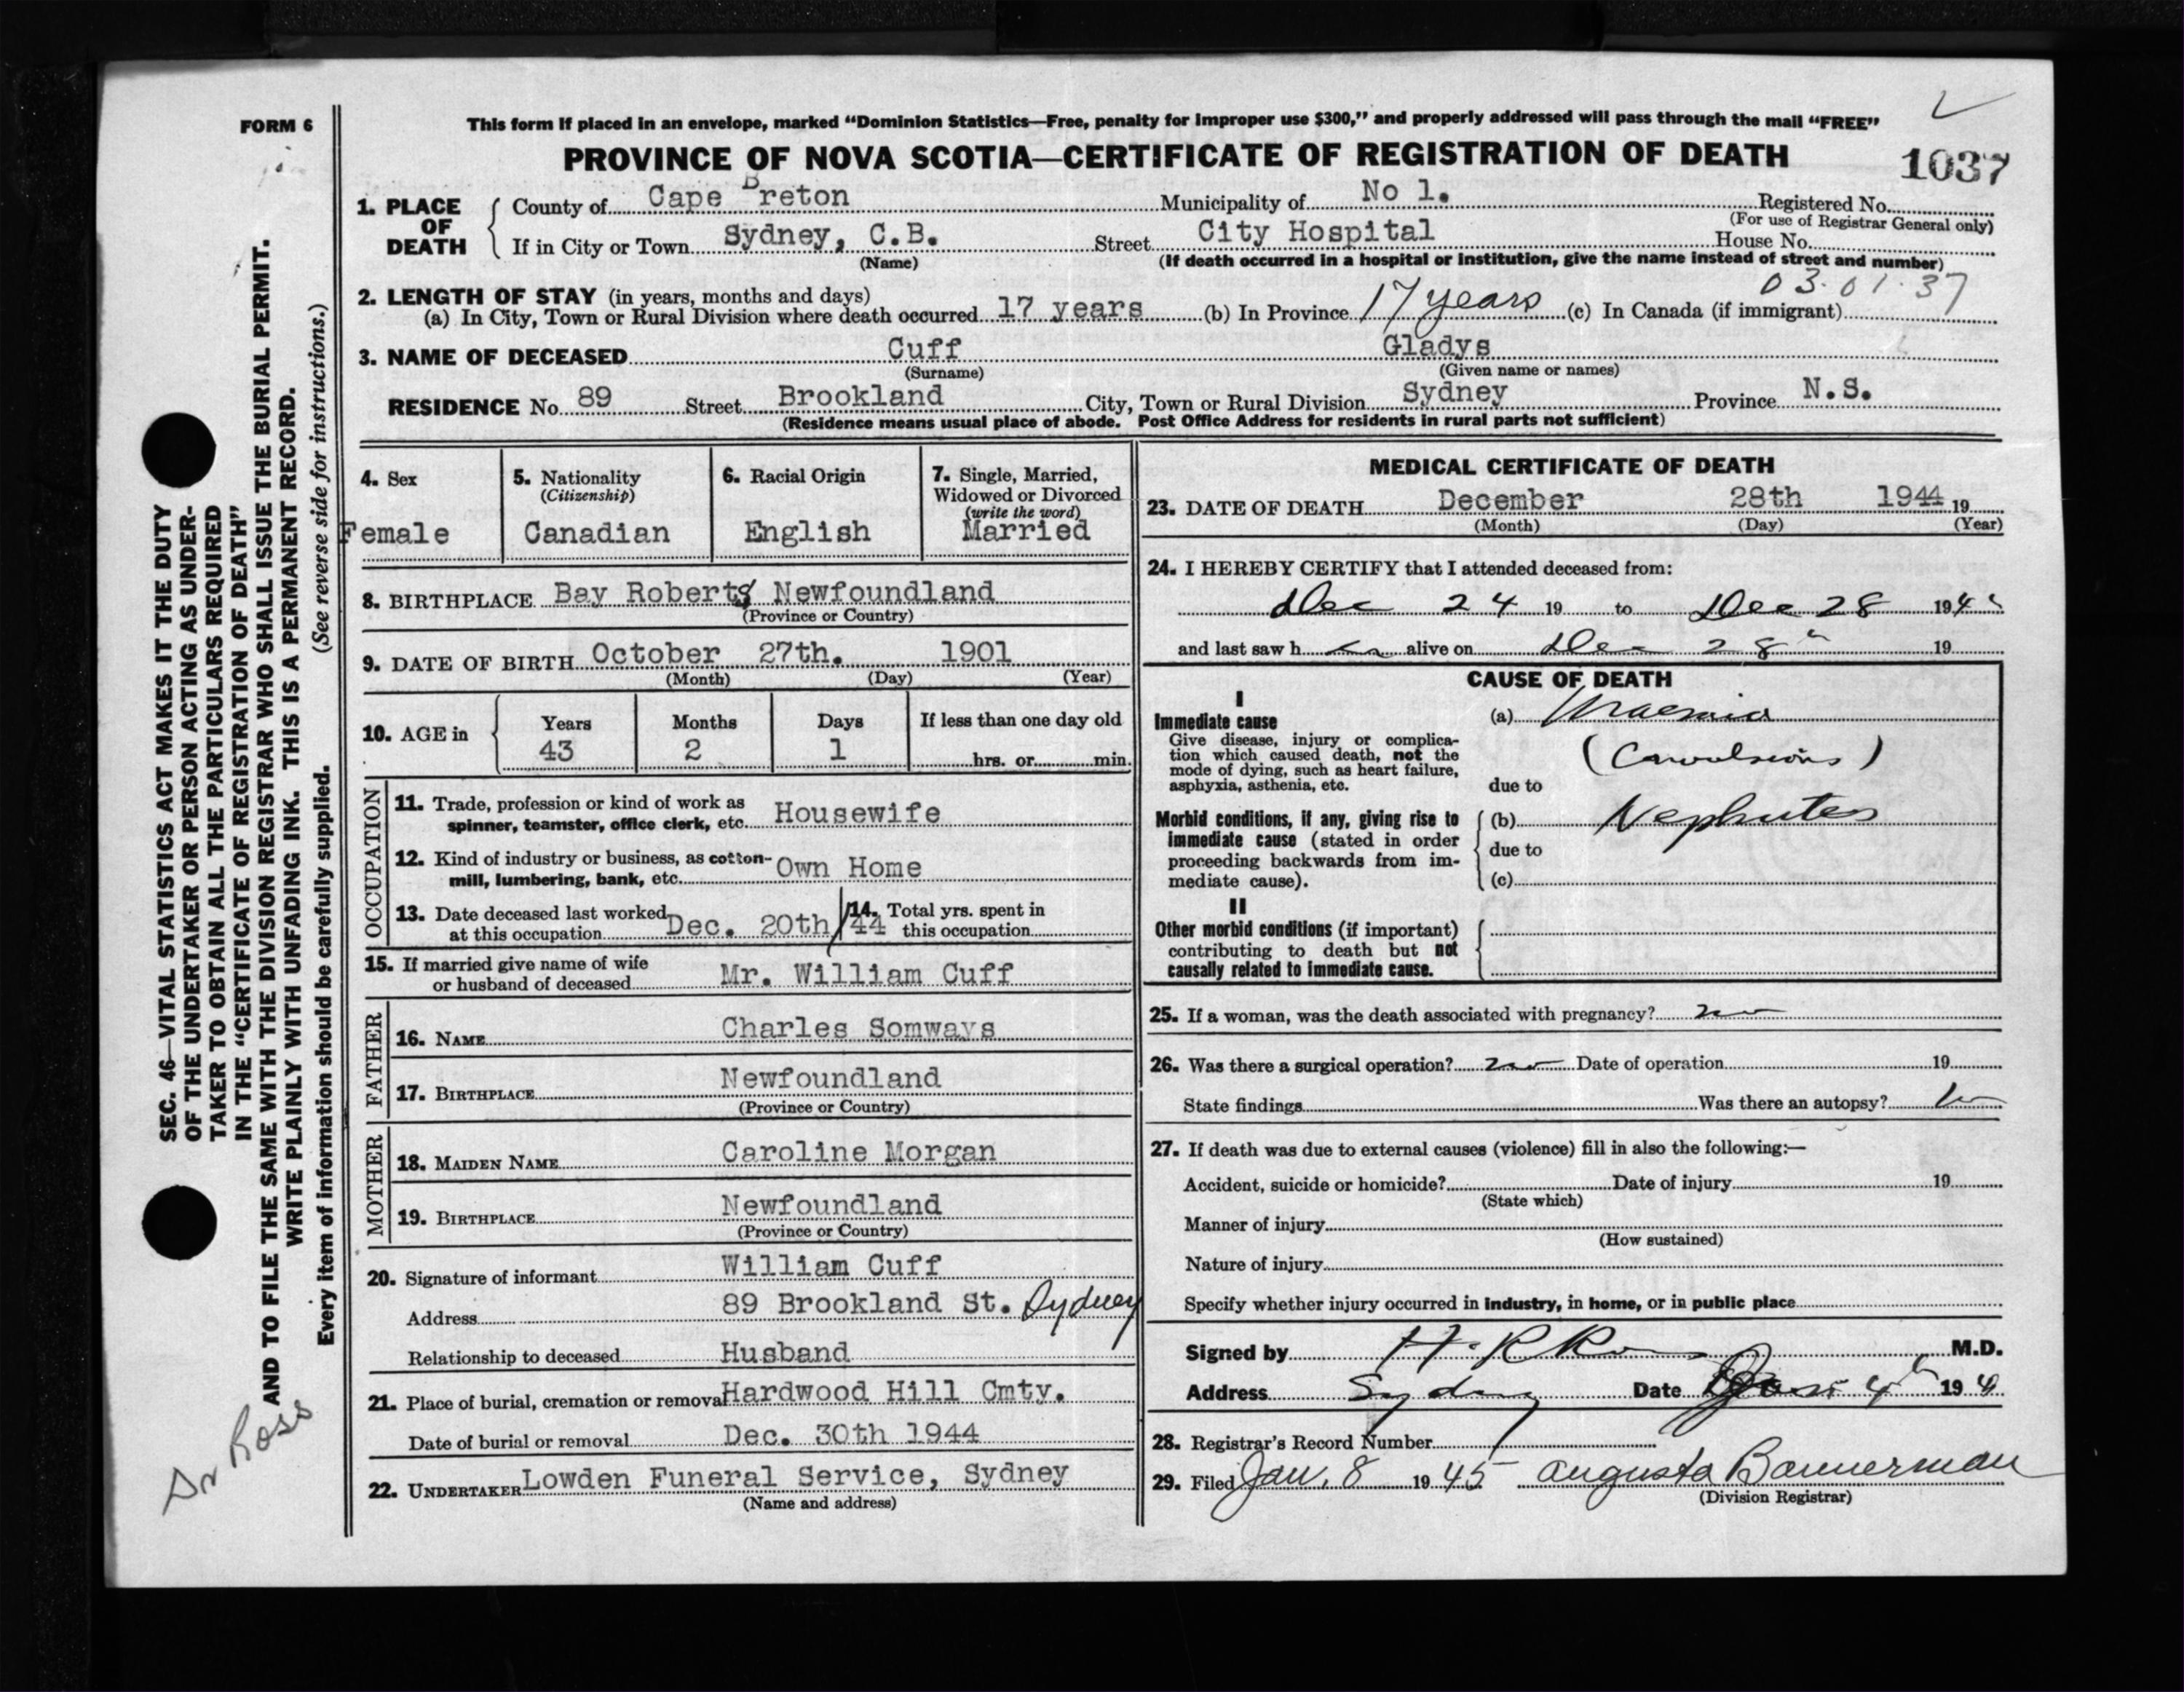 FORM 6
This form if placed in an envelope, marked “Dominion Statistics—Free, penalty for improper use $300,” and properly addressed will pass through the mail “FREE”
PROVINCE OF NOVA SCOTIA—CERTIFICATE OF REGISTRATION OF DEATH
1037
1. PLACE OF DEATH
County of Cape Breton Municipality of No 1. Registered No.
(For use of Registrar General only)
If in City or Town Sydney, C.B. Street City Hospital House No.
(Name) (If death occurred in a hospital or institution, give the name instead of street and number)
03.01.37
2. LENGTH OF STAY (in years, months and days)
(a) In City, Town or Rural Division where death occurred 17 years (b) In Province 17 years (c) In Canada (if immigrant)
3. NAME OF DECEASED Cuff Gladys
(Surname) (Given name or names)
RESIDENCE No. 89 Street Brookland City, Town or Rural Division Sydney Province N.S.
(Residence means usual place of abode. Post Office Address for residents in rural parts not sufficient)
4. Sex
Female
5. Nationality
(Citizenship)
Canadian
6. Racial Origin
English
7. Single, Married,
Widowed or Divorced
(write the word)
Married
8. BIRTHPLACE Bay Roberts Newfoundland
(Province or Country)
9. DATE OF BIRTH October 27th. 1901
(Month) (Day) (Year)
10. AGE in
Years Months Days If less than one day old
43 2 1 hrs. or min.
OCCUPATION
11. Trade, profession or kind of work as
spinner, teamster, office clerk, etc. Housewife
12. Kind of industry or business, as cotton-
mill, lumbering, bank, etc. Own Home
13. Date deceased last worked
at this occupation Dec. 20th/44
14. Total yrs. spent in
this occupation
15. If married give name of wife
or husband of deceased Mr. William Cuff
FATHER
16. NAME Charles Somways
17. BIRTHPLACE Newfoundland
(Province or Country)
MOTHER
18. MAIDEN NAME Caroline Morgan
19. BIRTHPLACE Newfoundland
(Province or Country)
20. Signature of informant William Cuff
Address 89 Brookland St. Sydney
Relationship to deceased Husband
21. Place of burial, cremation or removal Hardwood Hill Cmty.
Date of burial or removal Dec. 30th 1944
22. UNDERTAKER Lowden Funeral Service, Sydney
(Name and address)
MEDICAL CERTIFICATE OF DEATH
23. DATE OF DEATH December 28th 1944 19
(Month) (Day) (Year)
24. I HEREBY CERTIFY that I attended deceased from:
Dec 24 19 to Dec 28 194
and last saw h alive on Dec 28th 19
CAUSE OF DEATH
I
Immediate cause
Give disease, injury or complica-
tion which caused death, not the
mode of dying, such as heart failure,
asphyxia, asthenia, etc.
(a) Uraemia
(Convulsions)
due to
Morbid conditions, if any, giving rise to
immediate cause (stated in order
proceeding backwards from im-
mediate cause).
(b) Nephrites
due to
(c)
II
Other morbid conditions (if important)
contributing to death but not
causally related to immediate cause.
25. If a woman, was the death associated with pregnancy? no
26. Was there a surgical operation? no Date of operation 19
State findings Was there an autopsy? no
27. If death was due to external causes (violence) fill in also the following:—
Accident, suicide or homicide? Date of injury 19
(State which)
Manner of injury
(How sustained)
Nature of injury
Specify whether injury occurred in industry, in home, or in public place
Signed by H. R Ross M.D.
Address Sydney Date 4th 194
28. Registrar's Record Number
29. Filed Jan. 8 1945 Augusta Bannerman
(Division Registrar)
SEC. 46—VITAL STATISTICS ACT MAKES IT THE DUTY
OF THE UNDERTAKER OR PERSON ACTING AS UNDER-
TAKER TO OBTAIN ALL THE PARTICULARS REQUIRED
IN THE “CERTIFICATE OF REGISTRATION OF DEATH”
AND TO FILE THE SAME WITH THE DIVISION REGISTRAR WHO SHALL ISSUE THE BURIAL PERMIT.
WRITE PLAINLY WITH UNFADING INK. THIS IS A PERMANENT RECORD.
Every item of information should be carefully supplied. (See reverse side for instructions.)
Dr Ross